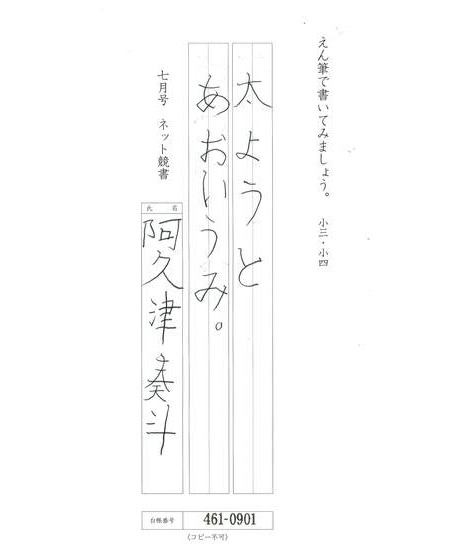 えん筆で書いてみましょう。 小三・小四
太ようと
あおいうみ。
七月号 ネット競書
氏名
阿久津奏斗
台帳番号 461-0901
(コピー不可)